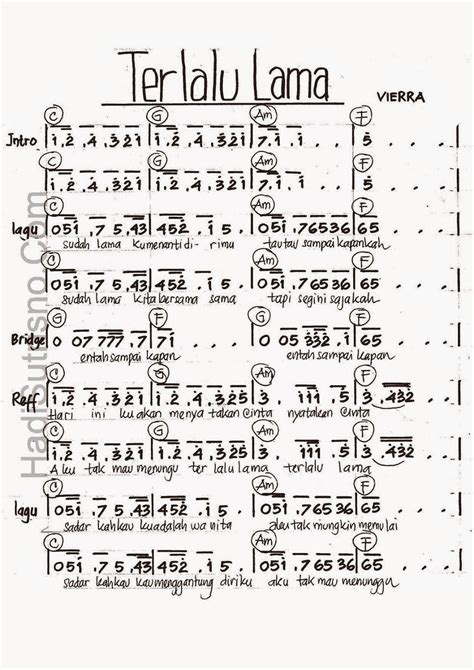 Terlalu Lama
VIERRA
C G Am F
Intro 1.2.4.321 1.2.4.321 7.1.1.. 5...
C G Am F
1.2.4.321 1.2.4.321 7.1.1.. 5...
C G Am F
lagu 051.75.43 452.15. 051.76536 65...
sudah lama kumenantidi-rimu tautau sampai kapankah
C G Am F
051.75.43 452.15. 051.76536 65...
sudah lama kitabersama sama tapi segini sajakah
G F G F
Bridge 0 07 777.7 71... 0 05 332.1 65...
entahsampai kapan entahsampai kapan
C G Am F
Reff 1.2.4.321 1.2.4.325 3.111.5 3.432..
Hari ini kuakan menya takan@inta nyatakan @inta
C G Am F
1.2.4.321 1.2.4.325 3.111.5 3.432..
Aku tak mau menungu ter lalu lama terlalu lama
C G Am F
lagu 051.75.43 452.15. 051.76536 65...
sadar kahkau kuadalah wa nita aku tak mungkin memulai
C G Am F
051.75.43 452.15. 051.76536 65...
sadar kahkau kaumenggantung diriku aku tak mau menunggu
HadiSutisno.Com